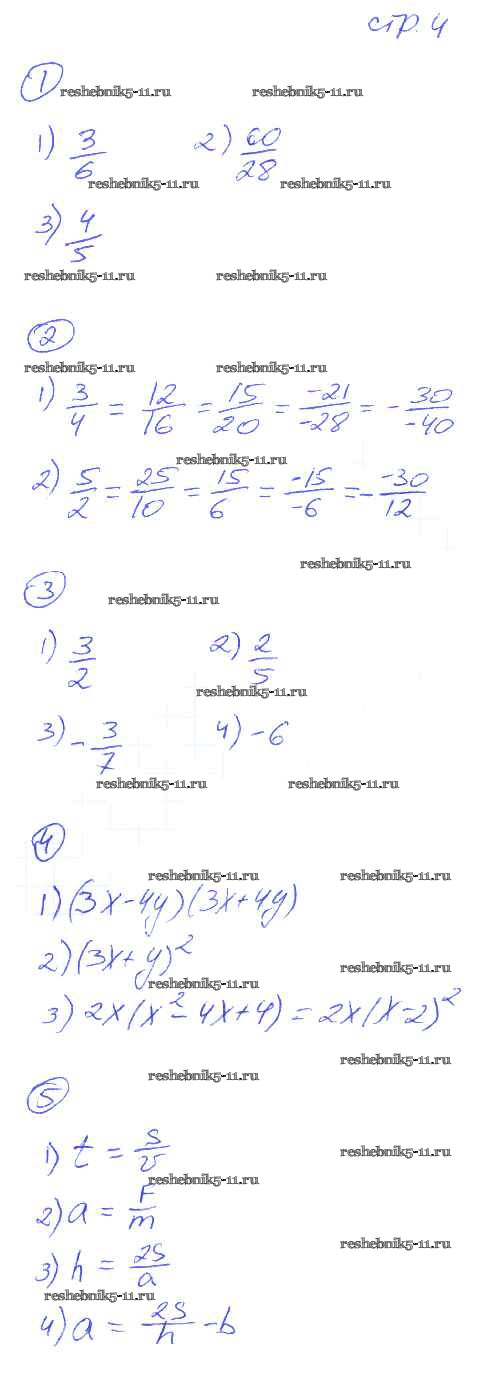 стр. 4
1
reshebnik5-11.ru reshebnik5-11.ru
1) 3/6 2) 60/28
reshebnik5-11.ru reshebnik5-11.ru
3) 4/5
reshebnik5-11.ru reshebnik5-11.ru
2
reshebnik5-11.ru reshebnik5-11.ru
1) 3/4 = 12/16 = 15/20 = -21/-28 = - 30/-40
reshebnik5-11.ru
2) 5/2 = 25/10 = 15/6 = -15/-6 = - -30/12
reshebnik5-11.ru
3
reshebnik5-11.ru
1) 3/2 2) 2/5
reshebnik5-11.ru
3) - 3/7 4) -6
reshebnik5-11.ru reshebnik5-11.ru
4
reshebnik5-11.ru reshebnik5-11.ru
1) (3x-4y)(3x+4y)
2) (3x+y)²
reshebnik5-11.ru
reshebnik5-11.ru
3) 2x(x²-4x+4) = 2x(x-2)²
reshebnik5-11.ru
reshebnik5-11.ru
5
1) t = s/v
reshebnik5-11.ru
reshebnik5-11.ru
2) a = F/m
reshebnik5-11.ru
3) h = 2s/a
reshebnik5-11.ru
4) a = 2s/h - b